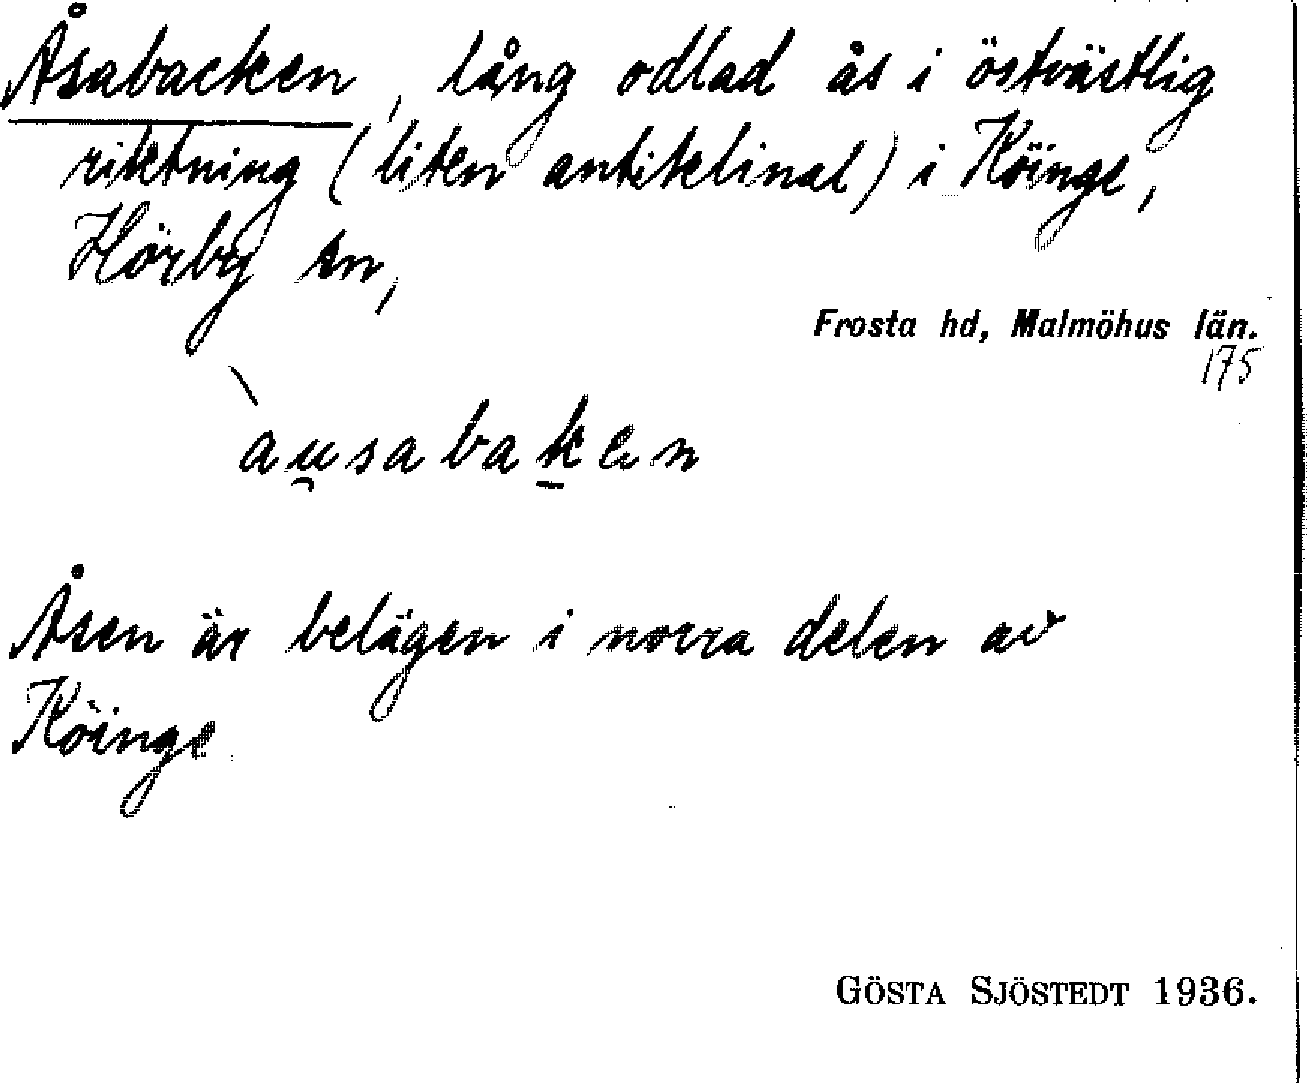 Åsabacken, lång odlad ås i östvästlig
riktning (liten antiklinal) i Köinge,
Hörby sn,
Frosta hd, Malmöhus län.
175
`au̯sabak̲en
Åsen är belägen i norra delen av
Köinge.
GÖSTA SJÖSTEDT 1936.